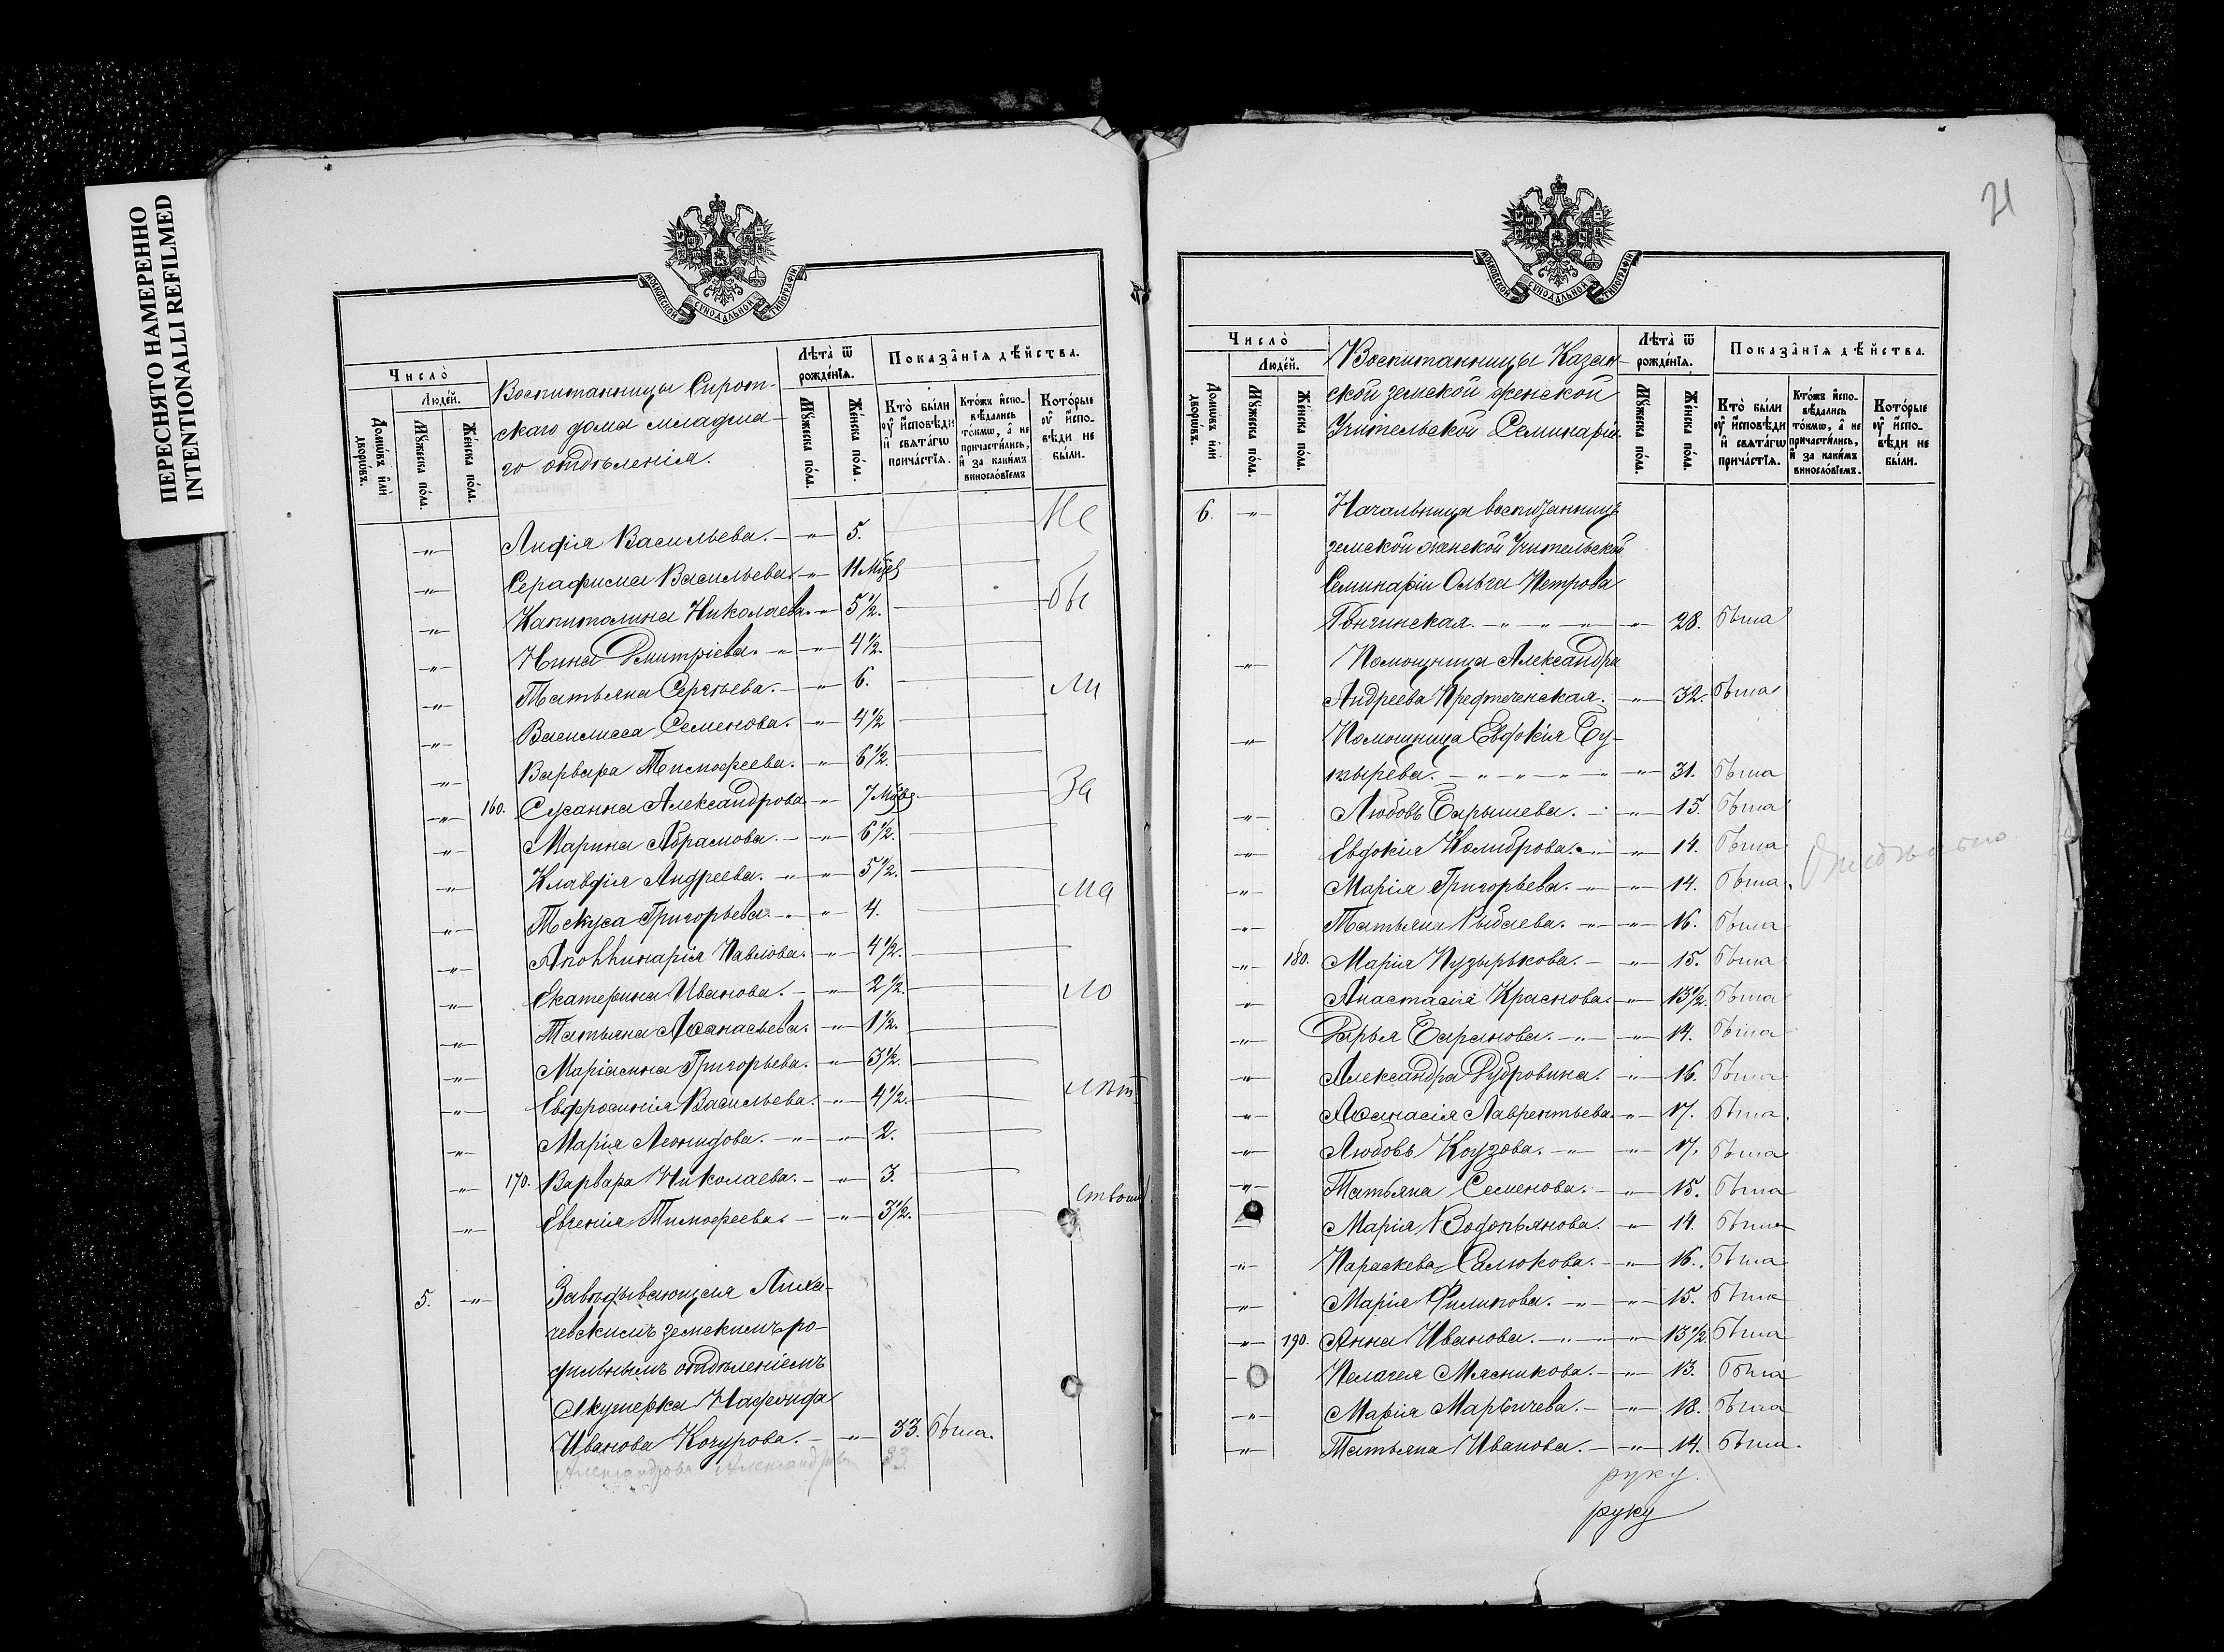 ПЕРЕСНЯТО НАМЕРЕННО
INTENTIONALLI REFILMED
МОСКОВСКОЙ СѴНОДАЛЬНОЙ ТИПОГРАФІИ
Число̀
Людей.
Домѡвъ или дворѡвъ.
Мꙋжеска пола.
Женска пола.
Воспитанницы Сирот-
скаго дома младша-
го отдѣленія.
Лѣта̀ ѿ рожденія.
Мꙋжеска пола.
Женска пола.
Показанія дѣйства.
Кто̀ были ᲂу҆ исповѣди и свѧтагѡ причастїѧ.
Ктожъ исповѣдались токмѡ, а не причастились, и за какимъ винословїемъ
Которые ᲂу҆ исповѣди не были.
„ Лидія Васильева. „ 5. Не
„ Серафима Васильева. „ 11 мѣс.
„ Капитолина Николаева. „ 5½. бы
„ Нина Дмитріева. „ „ 4½.
„ Татьяна Сергѣева. „ 6. ли
„ Василисса Семенова. „ 4½
„ Варвара Тимофеева. „ 6½.
„ 160. Сусанна Александрова „ 7 мѣс. За
„ Марина Абрамова. „ 6½.
„ Клавдія Андреева. „ „ 5½.
„ Текуса Григорьева. „ „ 4. ма
„ Аполлинарія Павлова. „ 4½.
„ Екатерина Иванова. „ 2½. ло
„ Татьяна Аѳанасьева. „ 1½.
„ Маріамна Григорьева. „ 3½.
„ Евфросинія Васильева. „ 4½. лѣт
„ Марія Леонидова. „ „ 2.
„ 170. Варвара Николаева. „ 3.
ством.
„ Евгенія Тимофеева. „ 3½.
5. „ Завѣдывающая Лиха-
чевскимъ земскимъ ро-
дильнымъ отдѣленіемъ
Акушерка Надежда
Иванова Кочурова. „ 33. Была.
Александрова Александрова 33
21
МОСКОВСКОЙ СѴНОДАЛЬНОЙ ТИПОГРАФІИ
Число̀
Людей.
Домѡвъ или дворѡвъ.
Мꙋжеска пола.
Женска пола.
Воспитанницы Казан-
ской земской женской
Учительской Семинаріи.
Лѣта̀ ѿ рожденія.
Мꙋжеска пола.
Женска пола.
Показанія дѣйства.
Кто̀ были ᲂу҆ исповѣди и свѧтагѡ причастїѧ.
Ктожъ исповѣдались токмѡ, а не причастились, и за какимъ винословїемъ.
Которые ᲂу҆ исповѣди не были.
6. „ Начальница воспитанницъ
земской женской Учительской
Семинаріи Ольга Петрова
„ 28. Была
„ Помощница Александра
Андреева Предтеченская. „ 32. Была
„ Помощница Евдокія Бу-
тырева. „ „ „ „ 31. Была
„ Любовь Барышева. „ 15. Была
„ Евдокія „ „ 14. Была
„ Марія Григорьева. „ „ 14. Была.
„ Татьяна Рыбаева. „ „ 16. Была
„ 180. Марія Пузырькова. „ 15. Была
„ Анастасія Краснова. „ 13½. Была
„ Дарья Баранова. „ „ 14. Была
„ Александра Дубровина. „ 16. Была
„ Аѳанасія Лаврентьева. „ 17. Была.
„ Любовь Коузова. „ „ 17. Была
„ Татьяна Семенова. „ 15. Была
Марія Водопьянова. „ 14. Была
„ Параскева Салюкова. „ 16. Была
„ Марія Филипова. „ „ 15. Была
„ 190. Анна Иванова. „ „ 13½. Была
Пелагея Мясникова. „ 13. Была
„ Марія Марьичева. „ 18. Была
„ Татьяна Иванова. „ 14. Была.
руку.
руку